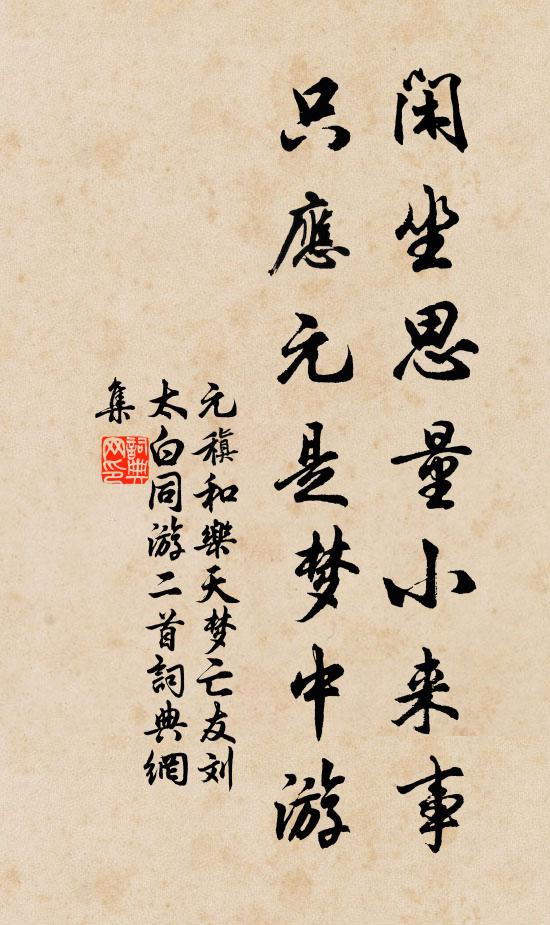 閑坐思量小来事
只應元是梦中游
元稹和樂天梦亡友刘
太白同游二首詞典網
集
詞典網印